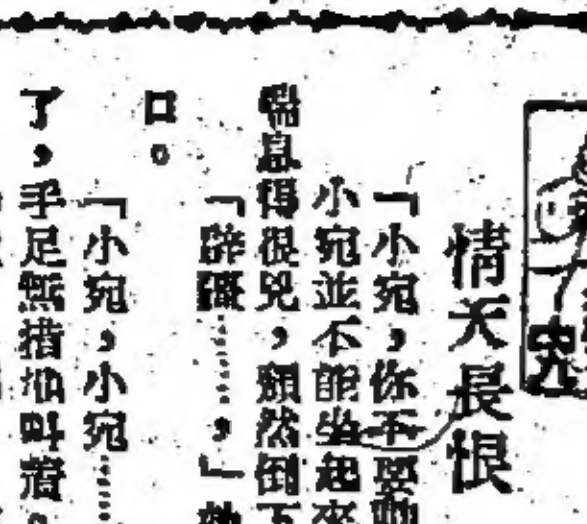 情天長恨
「小宛，你不要動
小宛並不能坐起來
喘息得很兇，頹然倒下
「辟疆……，」她
口。
「小宛，小宛……
了，手足無措地叫着。